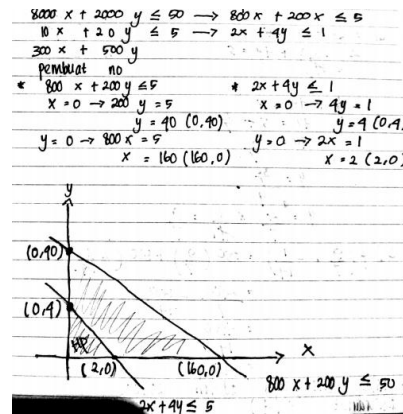 8000 x + 2000 y ≤ 50 → 800 x + 200 x ≤ 5
10 x + 20 y ≤ 5 → 2x + 4y ≤ 1
300 x + 500 y
pembuat no
* 800 x + 200 y ≤ 5
x = 0 → 200 y = 5
y = 40 (0,40)
y = 0 → 800 x = 5
x = 160 (160,0)
* 2x + 4y ≤ 1
x = 0 → 4y = 1
y = 4 (0,4
y = 0 → 2x = 1
x = 2 (2,0)
y
(0,40)
(0,4)
HP
(2,0)
(160,0)
X
800 x + 200 y ≤ 50
2x + 4y ≤ 5